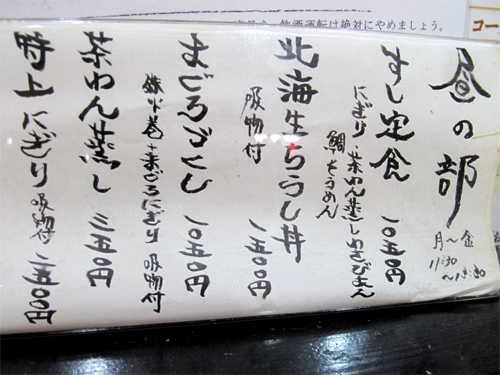 昼の部
月〜金
11:30
すし定食 一〇五〇円
にぎり・茶わん蒸し
鯛そうめん
北海生ちらし丼 一五〇〇円
吸物付
まぐろづくし 一〇五〇円
鉄火巻+まぐろにぎり 吸物付
茶わん蒸し 三五〇円
特上にぎり 吸物付 二五〇〇円
飲酒運転は絶対にやめましょう。
コー